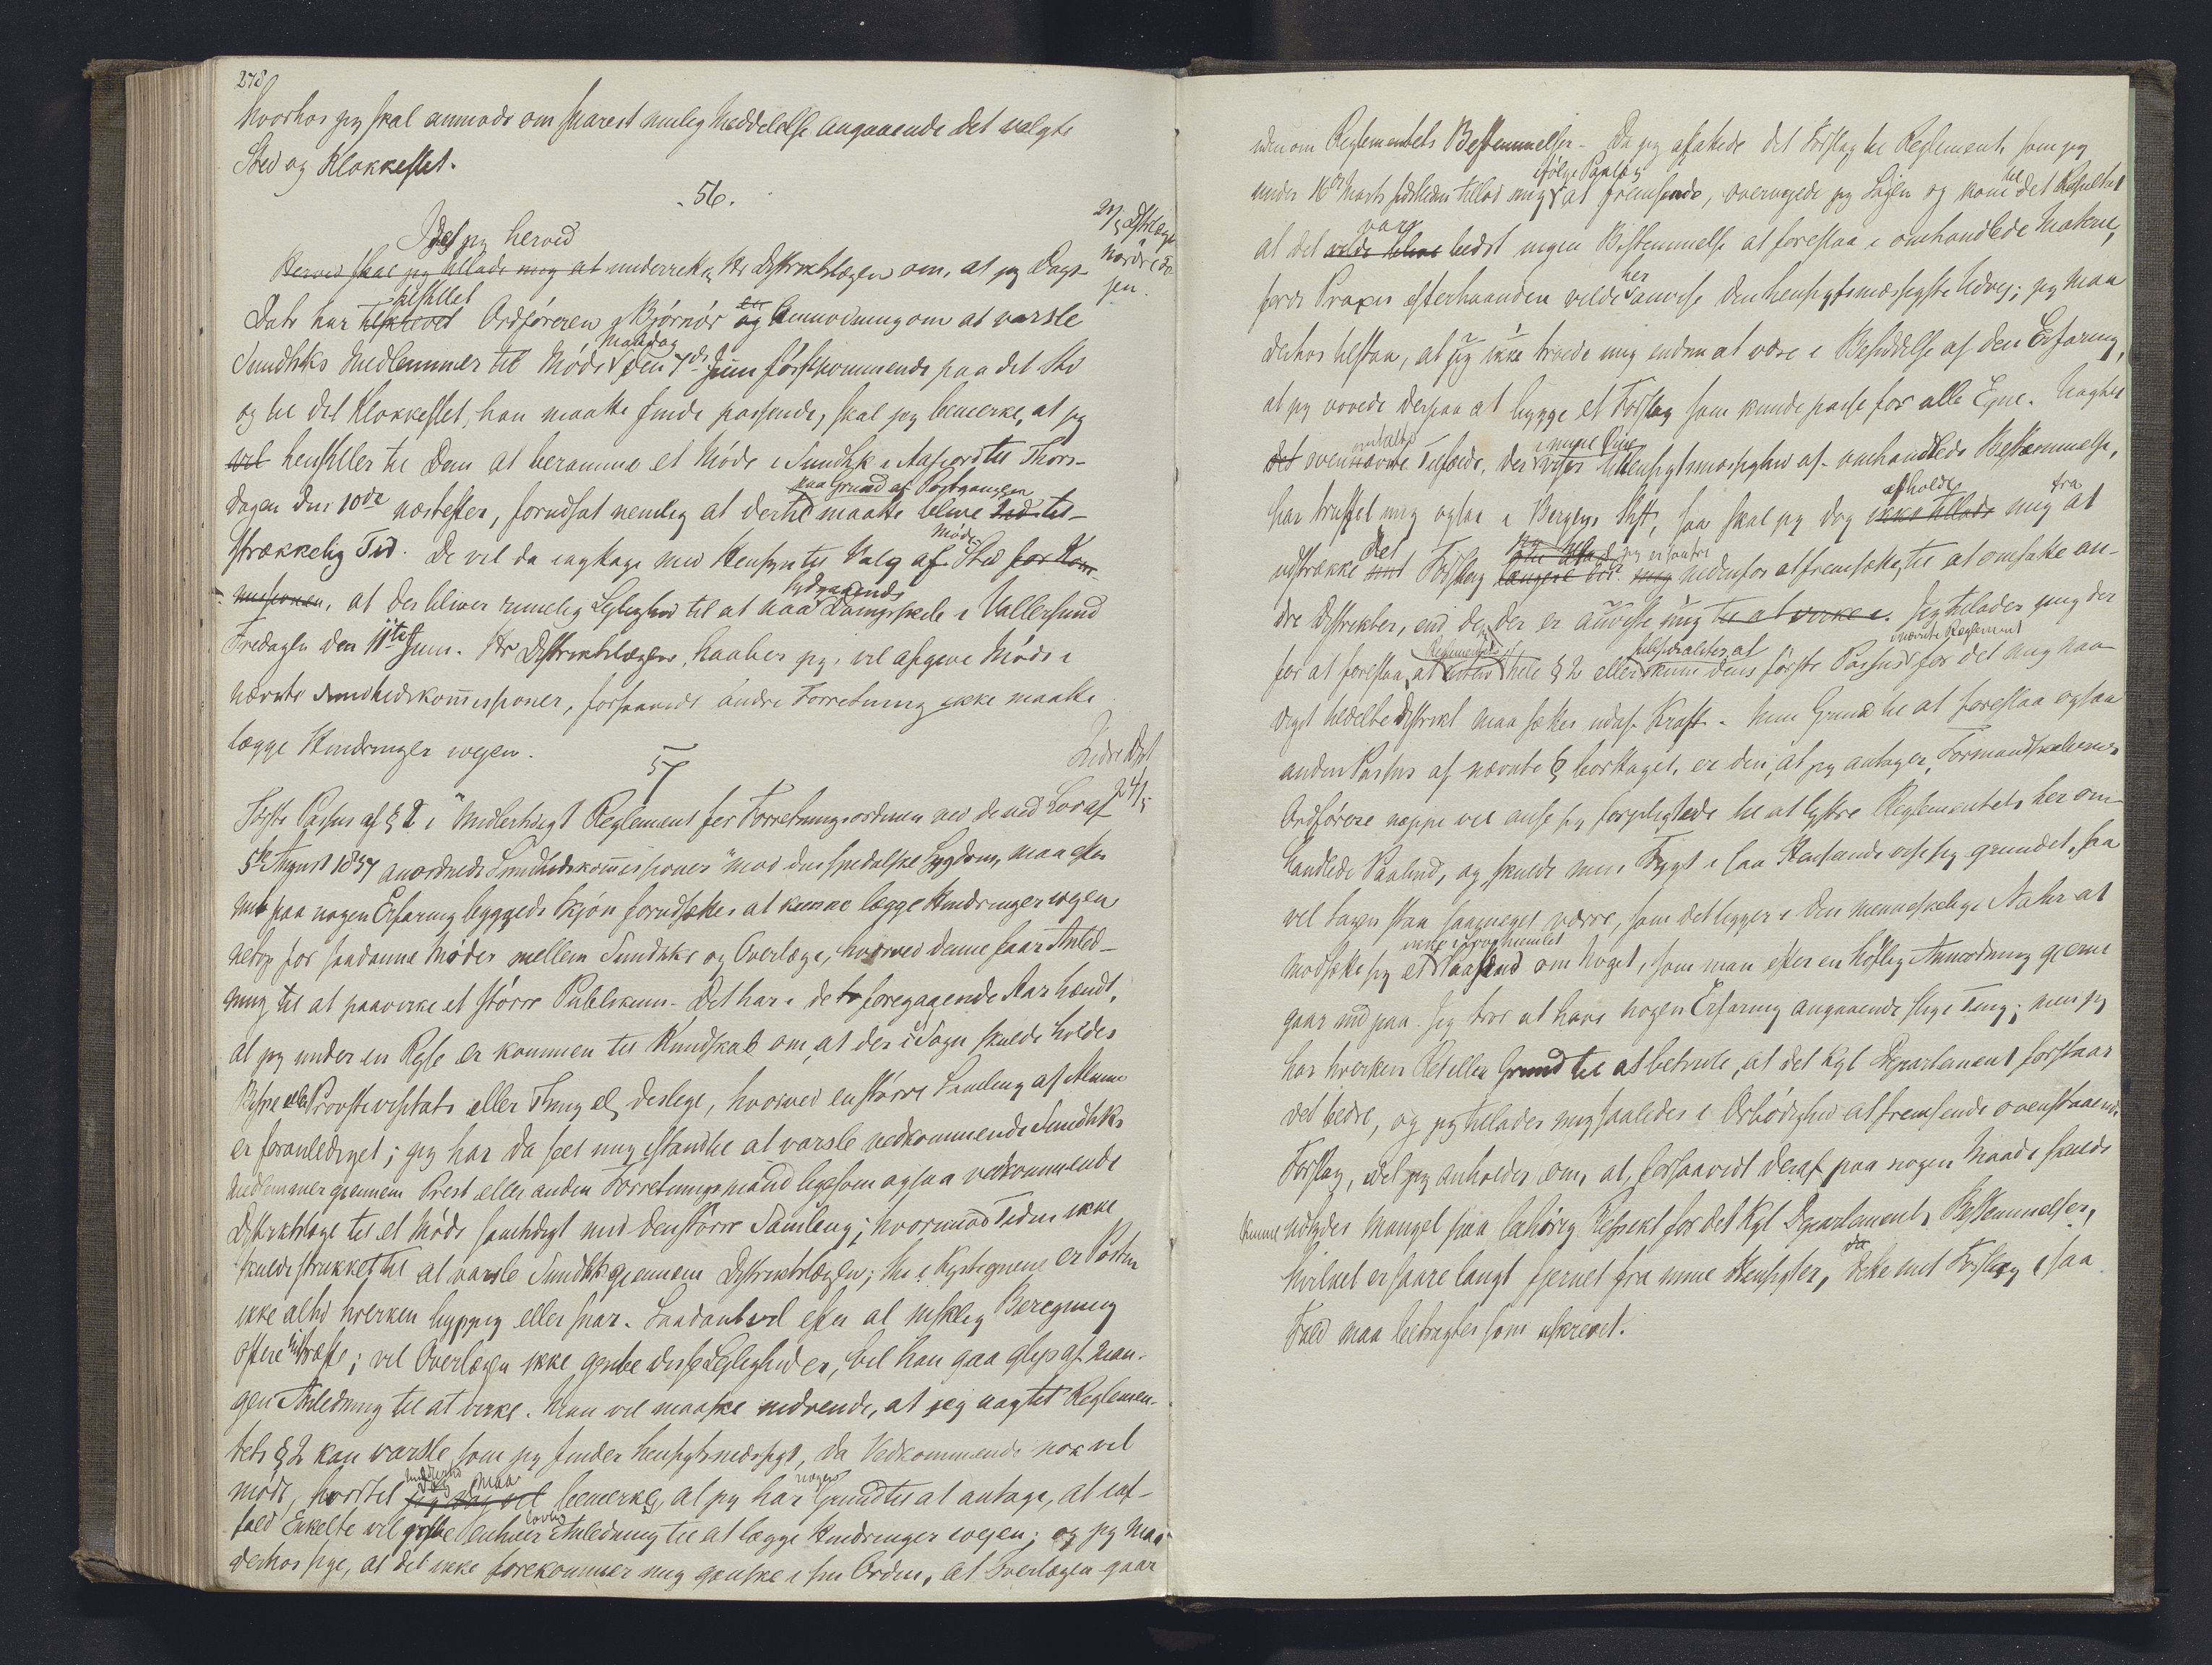 278
hvorhos jeg skal anmode om snarest mulig Meddelelse angaaende det valgte
Sted og Klokkeslet.
56.
21/5 Distrlægen
Nordre
sen.
Idet jeg herved
Herved skal jeg tillade mig at underrette Hr Distriktslægen om, at jeg Dags
Dato har tilskrevet tilstillet Ordføreren i Bjørnør og en Anmodning om at varsle
Sundhks Medlemmer til Møde Mandag den 7de Juni førstkommende paa det Sted
og til det Klokkeslet, han maatte finde passende, skal jeg bemerke, at jeg
vil henstiller til Dem at beramme et Møde i Sundhk i Aafjord til Thors-
dagen den 10de næstefter, forudsat nemlig at dertil paa Grund af Postgangen maatte blive Tid til-
strækkelig Tid. De vil da iagttage med Hensyn til Valg af Møde-Sted for Kom-
missionen, at der bliver rimelig Leilighed til at naa sydgaaende Dampskib i Vallersund
Fredagen den 11te Juni. Hr Distriktslægen, haaber jeg, vil afgive Møde i
nævnte Sundhedskommissioner, forsaavidt andre Forretning ikke maatte
lægge Hindringer iveien.
57
Indre Dpt
24/5
Første Passus af § 2 i "Midlertidigt Reglement for Forretningsordenen ved de ved Lov af
5te August 1857 anordnede Sundhedskommissioner" mod den spedalske Sygdom, maa efter
mit paa nogen Erfaring byggede Skjøn forudsættes at kunne lægge Hindringer iveien
netop for saadanne Møder mellem Sundhks og Overlæge, hvorved denne faar Anled-
ning til at paavirke et større Publikum. Det har i de to foregaaende Aar hændt,
at jeg under en Reise er kommen til Kundskab om, at der i Sogn skulde holdes
Bispe eller Provstevisitats eller Thing el deslige, hvorved en større Samling af Almue
er foranlediget; jeg har da seet mig istand til at varsle vedkommende Sundhks
Medlemmer gjennem Prest eller anden Forretningsmand ligesom ogsaa vedkommende
Distriktslæge til et Møde samtidigt med den større Samling; hvorimod Tiden ikke
skulde strukket til at varsle Sundhk gjennem Distriktslægen; thi i Kystegnene er Posten
ikke altid hverken hyppig eller snar. Saadant vil efter al mskelig Beregning
oftere intræffe; vil Overlægen ikke gribe disse Leiligheder, vil han gaa glip af man-
gen Anledning til at virke. Man vil maaske indvende, at jeg uagtet Reglemen-
tets § 2 kan varsle, som jeg finder hensigtsmæssigt, da Vedkommende nok vil
møde, hvortil jeg dog vil imidlertid maa bemerkes, at jeg har nogen Grund til at antage, at ial-
fald Enkelte vil gribe enhver lovlig Anledning til at lægge Hindringer iveien; og jeg maa
derhos sige, at det ikke forekommer mig ganske i sin Orden, at Overlægen gaar
udenom Reglementets Bestemmelser. Da jeg affattede det Forslag til Reglement, som jeg
under 16de Marts sidstleden tillod mig ifølge Paalæg at fremsende, overveiede jeg Sagen og kom til det Resultat
at det vilde blive var bedst ingen Bestemmelse at foreslaa i omhandlede Materie,
fordi Praxis efterhaanden vilde her anvise den hensigtsmæssigste Udvei; jeg maa
derhos tilstaa, at jeg ikke troede mig endnu at være i Besiddelse af den Erfaring,
at jeg vovede derpaa at bygge et Forslag som kunde passe for alle Egne. Uagtet
det ovennævnte omtalte Tilfælde, der viser i mine Øine Uhensigtsmæssighed af omhandlede Bestemmelse,
har truffet mig ogsaa i Bergens Stift, saa skal jeg dog ikke tillade afholde mig fra at
udstrække mit det Forslag længere end jeg nedenfor at fremsætte, til at omfatte an-
dre Distrikter, end de, der er anviste mig til at virke i. Jeg tillader mig der
for at foreslaa, at Reglementets hele § 2 eller kun dens første Passus i nævnte Reglement for det mig naa-
digst tildelte Distrikt maa sættes udaf Kraft. Min Grund til at foreslaa ogsaa
anden Passus af nævnte § borttaget, er den, at jeg antager, Formandskabernes
Ordførere neppe vil anse sig forpligtede til at lystre Reglementets her om-
handlede Paabud, og skulde min Frygt i saa Henseende vise sig grundet, saa
vil Sagen staa saameget værre, som det ligger i den menneskelige Natur at
modsætte sig et ikke ihjemlet Paabud om Noget, som man efter en høflig Anmodning gjerne
gaar ind paa. Jeg tror at have nogen Erfaring angaaende slige Ting; men jeg
har hverken Ret eller Grund til at betvivle, at det Kgl Departement forstaar
det bedre, og jeg tillader mig saaledes i Ærbødighed at fremsende ovenstaaende
Forslag, idet jeg anholder om, at, forsaavidt deraf paa nogen Maade skulde
kunne udtydes Mangel paa tilhørig Respekt for det Kgl Departements Bestemmelser,
hvilket er saare langt fjernet fra mine Hensigter, da dette mit Forslag i saa
Fald maa betragtes som uskrevet.